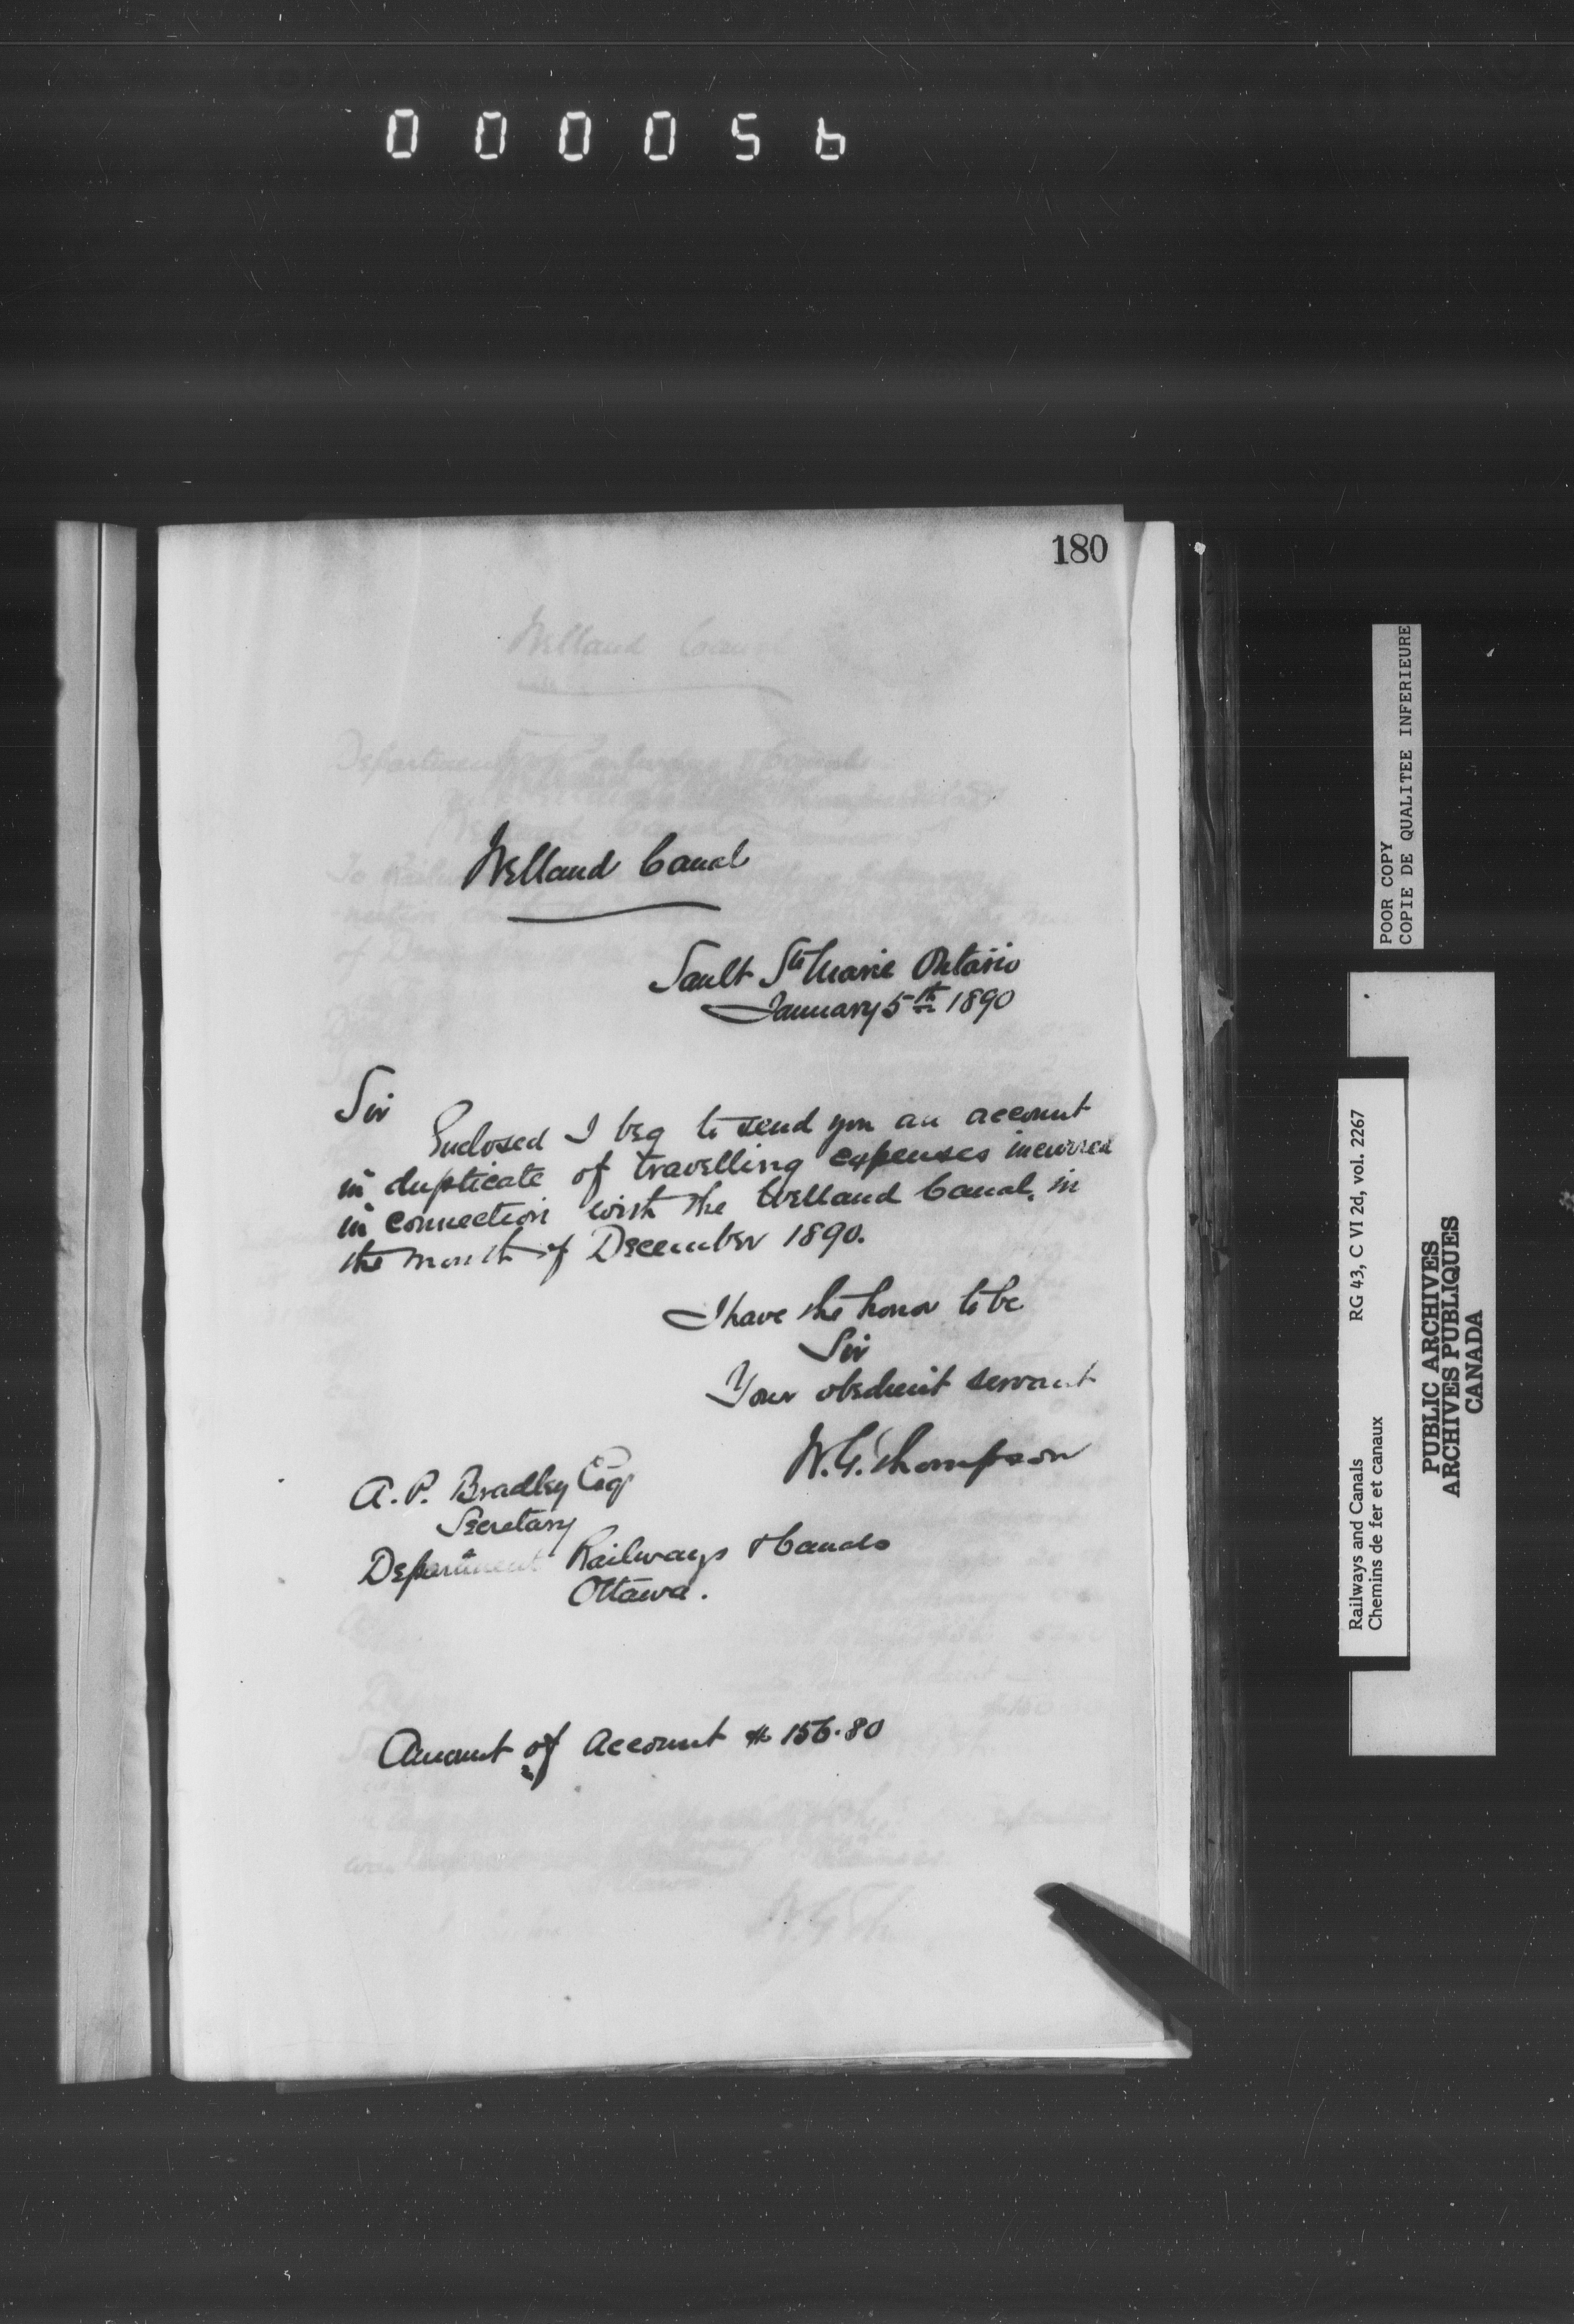 000056
180
Welland Canal
Sault Ste Marie Ontario
January 5th 1890
Sir
Enclosed I beg to send you an account
in duplicate of travelling expenses incurred
in connection with the Welland Canal, in
the month of December 1890.
I have the honor to be
Sir
Your obedient servant
W. G. Thompson
A. P. Bradley Esq
Secretary
Department Railways & Canals
Ottawa.
Amount of Account $ 156.80
POOR COPY
COPIE DE QUALITEE INFERIEURE
Railways and Canals RG 43, C VI 2d, vol. 2267
Chemins de fer et canaux
PUBLIC ARCHIVES
ARCHIVES PUBLIQUES
CANADA